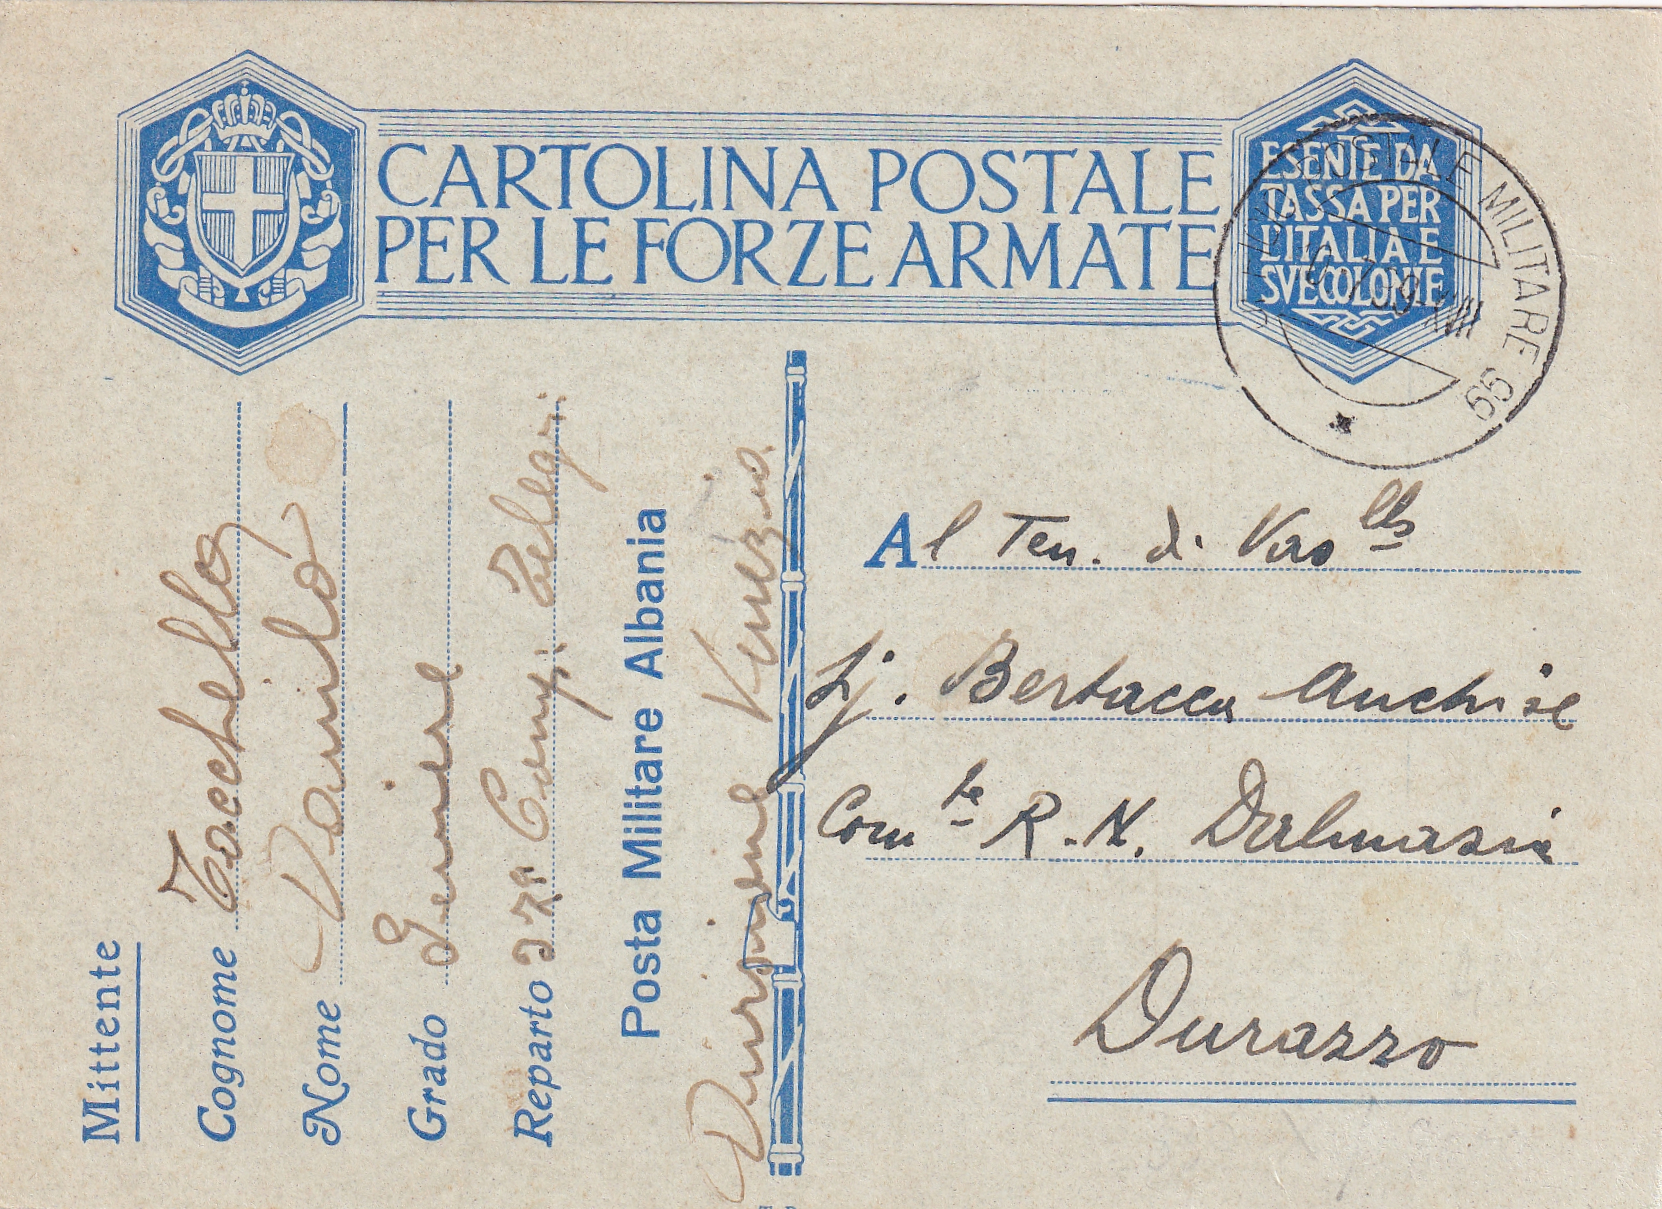 CARTOLINA POSTALE
PER LE FORZE ARMATE
ESENTE DA
TASSA PER
L'ITALIA E
SVE COLONIE
POSTALE MILITARE 66
7.39-XVII
Mittente
Cognome Tocchello
Nome Danilo
Grado Geniere
Reparto 27a Comp. Telegr.
Posta Militare Albania
Divisione Venezia
Al Ten. di Vasello
Sj. Bertacca Anchise
Comte R.N. Dalmasia
Durazzo